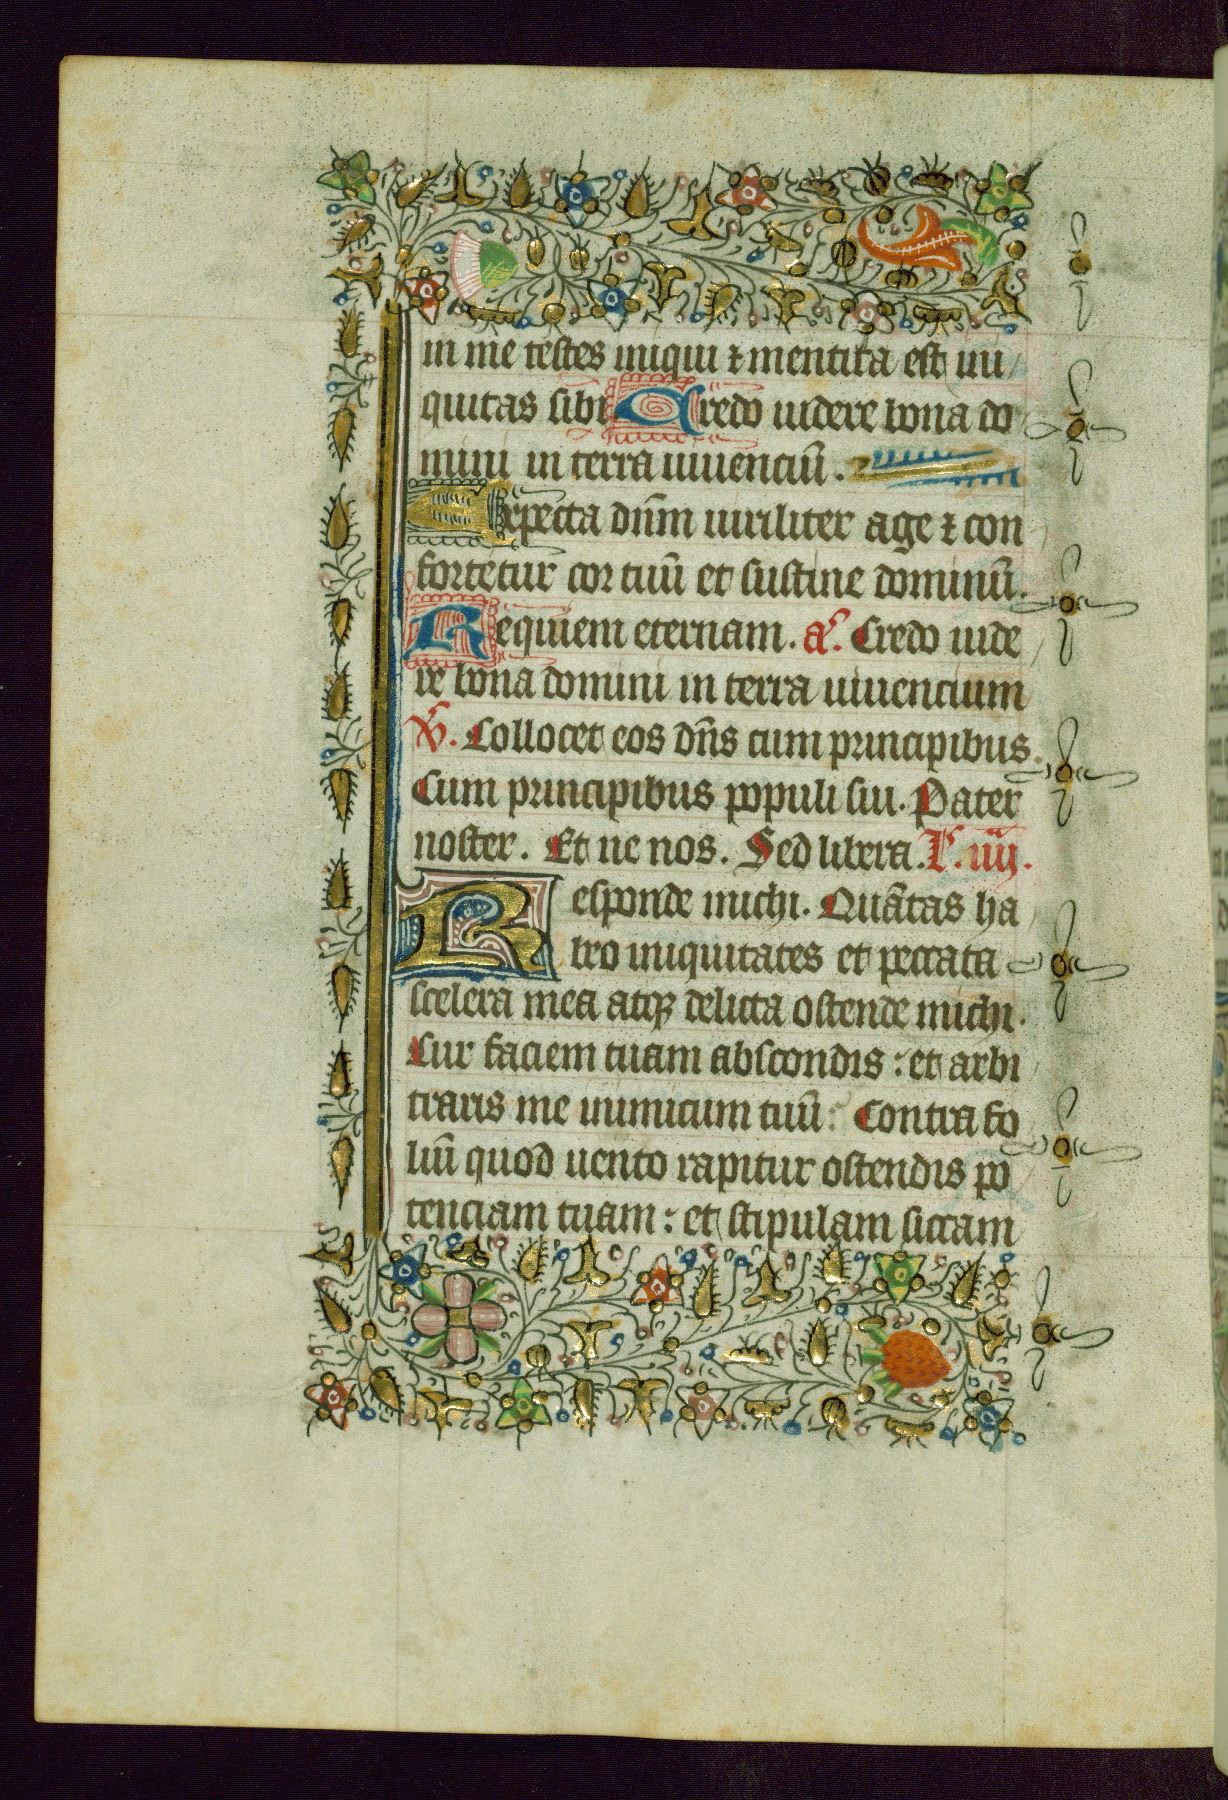 in me testes iniqui ⁊ mentita est ini
quitas sibi Credo uidere bona do
mini in terra uiuenciū.
Expecta dn̄m uiriliter age ⁊ con
fortetur cor tuū et sustine dominū.
Requiem eternam. a͞. Credo uide
re bona domini in terra uiuencium
v̄. Collocet eos dn̄s cum principibus.
Cum principibus populi sui. Pater
noster. Et ne nos. Sed libera. L͞. iiij.
Responde michi. Quātas ha
beo iniquitates et peccata
scelera mea atqꝫ delicta ostende michi.
Cur faciem tuam abscondis : et arbi
traris me inimicum tuū : Contra fo
liū quod uento rapitur ostendis po
tenciam tuam : et stipulam siccam